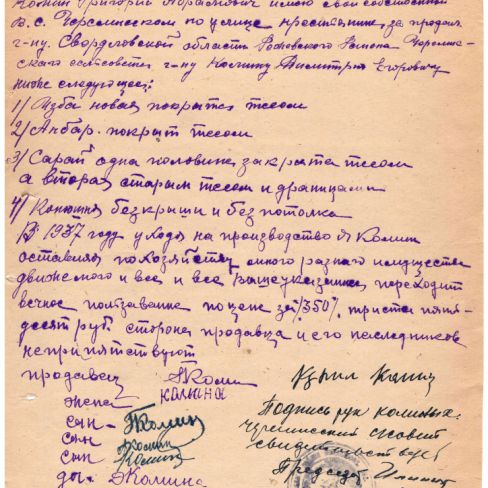 Колин Григорий Абрамович имею свой собственный
в с. Черемисском по улице крестьянне, за продал
г-ну. Свердловской области Режевского Района Черемис-
ского сельсовета г-ну Колину Димитрию Егоровичу
ниже следующее:
1) Изба новая покрыта тесом
2) Анбар. покрыт тесом
3) Сарай одна половина закрыта тесом
а вторая старым тесом и драницами
4) Конюшня без крыши и без потолка
В 1937 году уходя на производство Я Колин
оставляя по хозяйству много разного имущества
движемого и все и все вышеуказанное переходит
вечное ползавание по цене за 350% триста пять-
десят руб. стороны продавца и его последников
неприпятствуют
продавец Колин
жена Колина
сын- Колин
сын Колин
сын Колин
до. Колина
Купил Колин
Подпись рук колиных
Председ